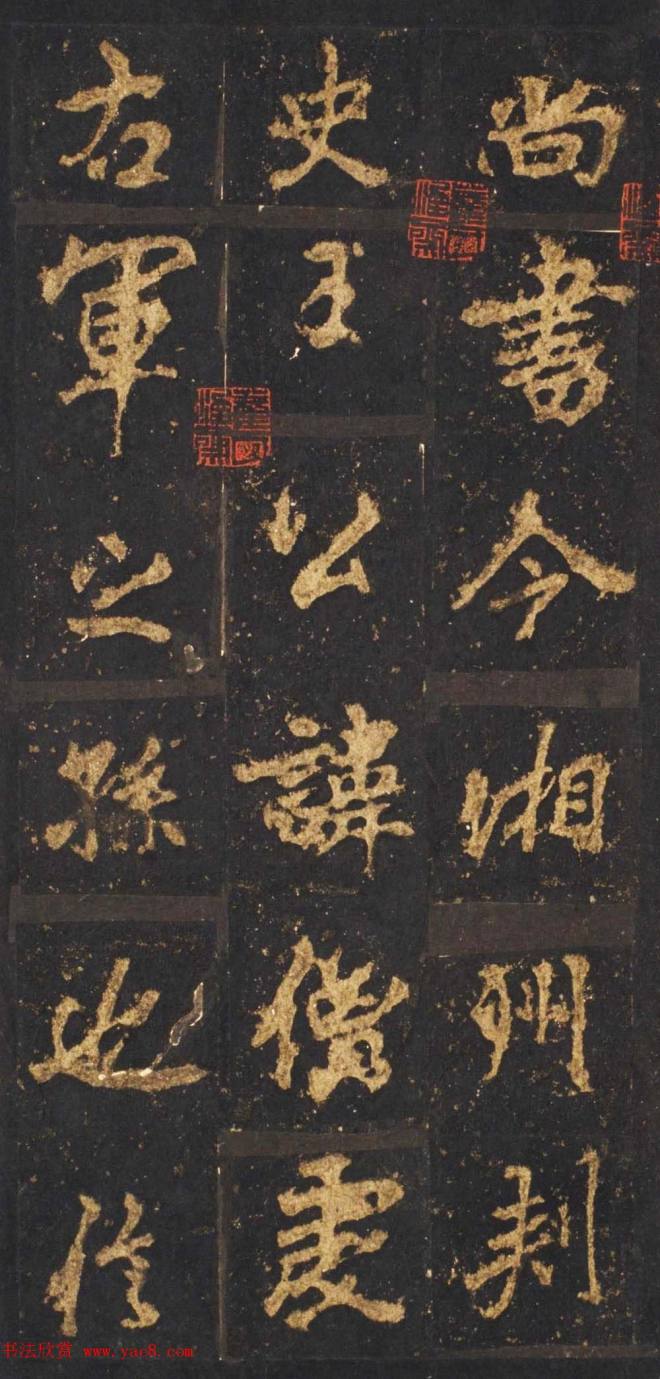 尚書令湘州刺
史王公諱僧虔
右軍之孫也
书法欣赏 www.yac8.com